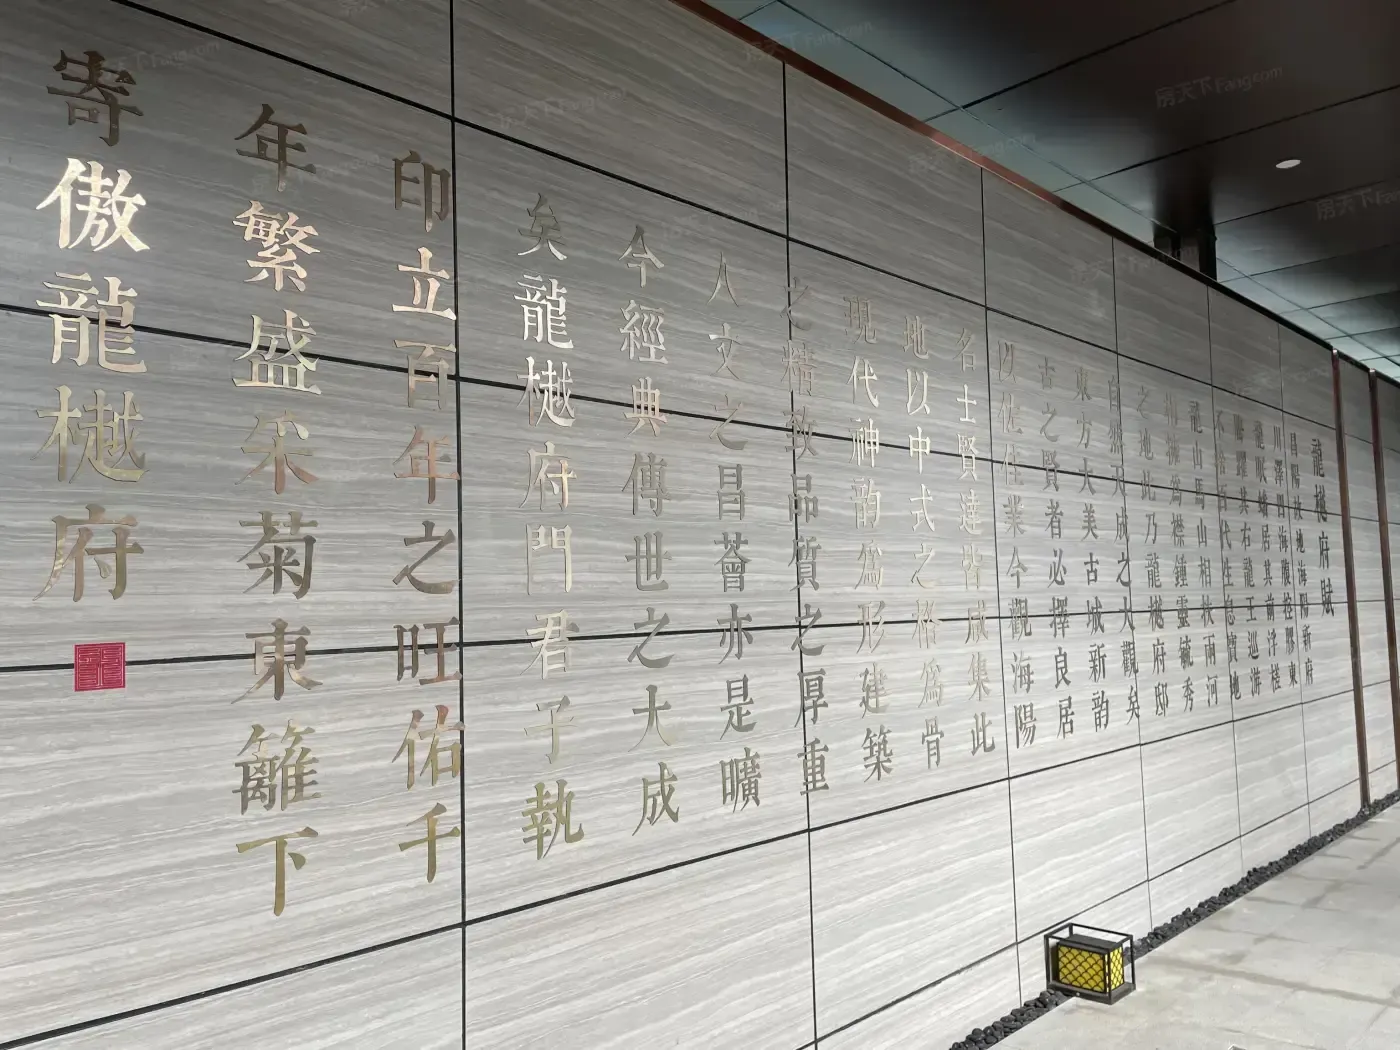 龍樾府賦
昌陽故地海陽新府
川澤四海腹控膠東
龍臥蟠居其前浮槎
騰躍其右龍王巡游
不捨百代生息寶地
龍山馬山相扶兩河
為襟鍾靈毓秀
之地此乃龍樾府邸
自然天成之大觀矣
東方大美古城新韵
古之賢者必擇良居
以佐住業今觀海陽
名士賢達皆咸集此
地以中式之格為骨
現代神韵為形建築
之精致品質之厚重
人文之昌薈亦是曠
今經典傳世之大成
矣龍樾府門君子執
印立百年之旺佑千
年繁盛采菊東籬下
寄傲龍樾府
房天下Fang.com